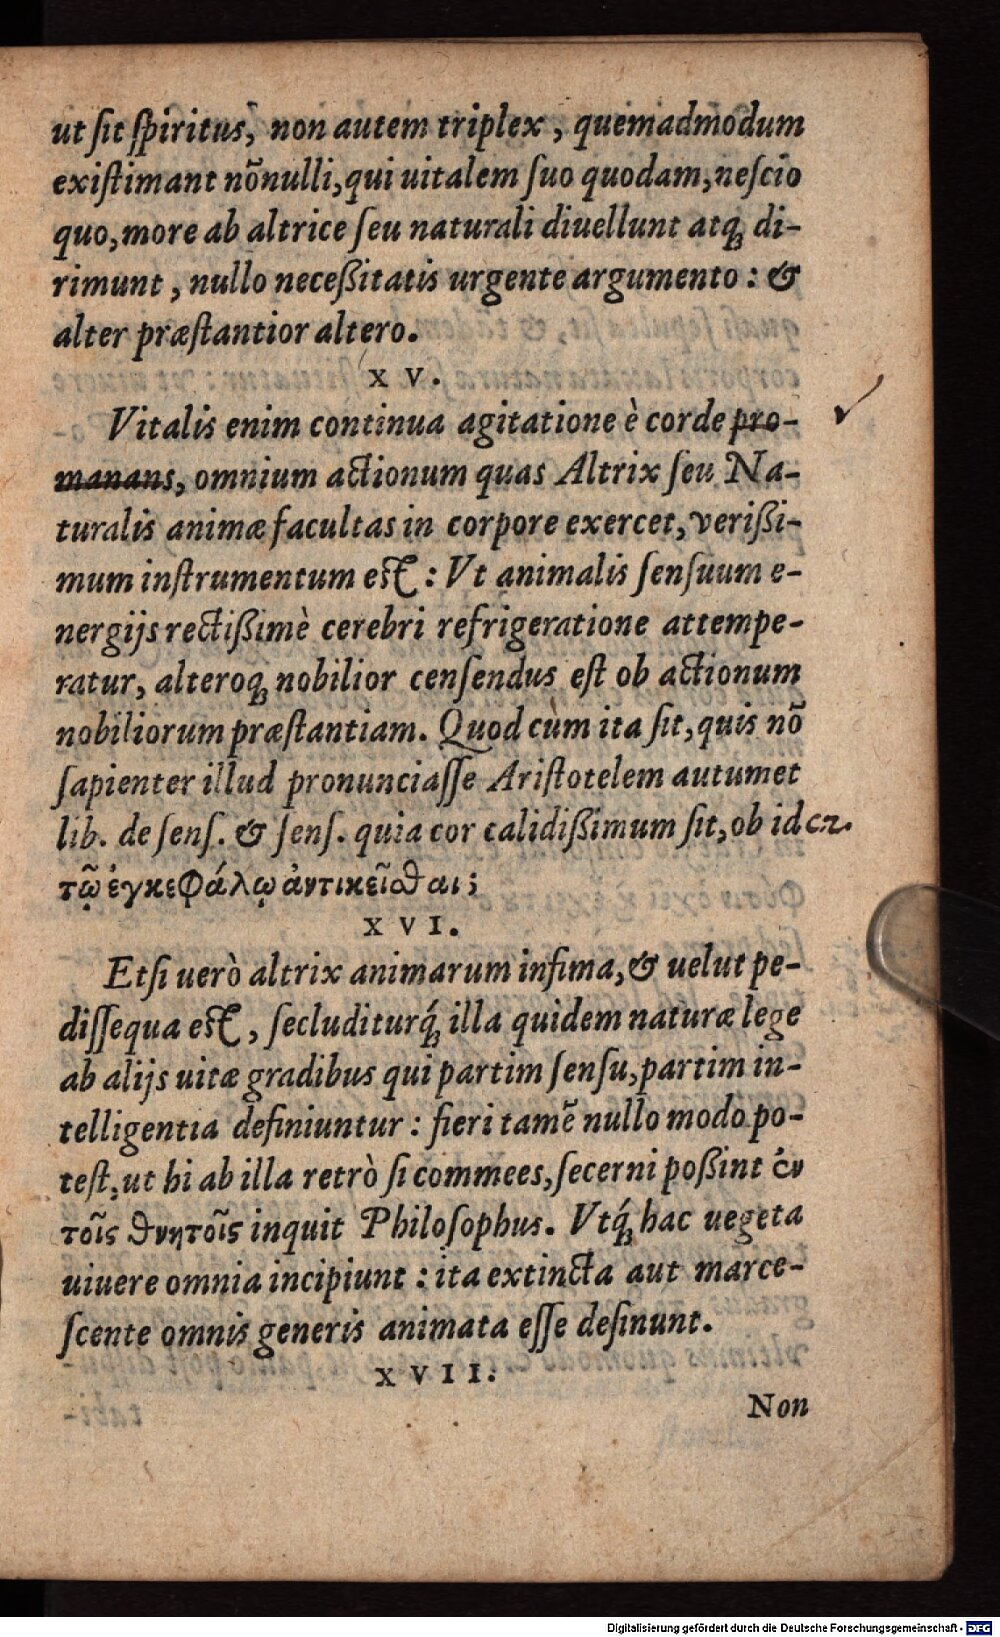 ut ſit ſpiritus, non autem triplex, quemadmodum
exiſtimant nõnulli, qui uitalem ſuo quodam, neſcio
quo, more ab altrice ſeu naturali diuellunt atqꝫ di-
rimunt, nullo neceßitatis urgente argumento: &
alter præſtantior altero.
XV.
Vitalis enim continua agitatione è corde pro-
manans, omnium actionum quas Altrix ſeu Na-
turalis animæ facultas in corpore exercet, verißi-
mum inſtrumentum eſt: Vt animalis ſenſuum e-
nergijs rectißimè cerebri refrigeratione attempe-
ratur, alteroqꝫ nobilior cenſendus eſt ob actionum
nobiliorum præſtantiam. Quod cùm ita ſit, quis nõ
ſapienter illud pronunciaſſe Ariſtotelem autumet
lib. de ſenſ. & ſenſ. quia cor calidißimum ſit, ob id
τῷ ἐγκεφάλῳ ἀντικεῖσθαι;
XVI.
Etſi uerò altrix animarum infima, & uelut pe-
diſſequa eſt, ſecluditurq́ꝫ illa quidem naturæ lege
ab alijs uitæ gradibus qui partim ſenſu, partim in-
telligentia definiuntur: fieri tamẽ nullo modo po-
teſt, ut hi ab illa retrò ſi commees, ſecerni poßint ἐν
τοῖς θνητοῖς inquit Philoſophus. Vtq́ꝫ hac uegeta
uiuere omnia incipiunt: ita extincta aut marce-
ſcente omnis generis animata eſſe deſinunt.
XVII.
Non
Digitalisierung gefördert durch die Deutsche Forschungsgemeinschaft - DFG